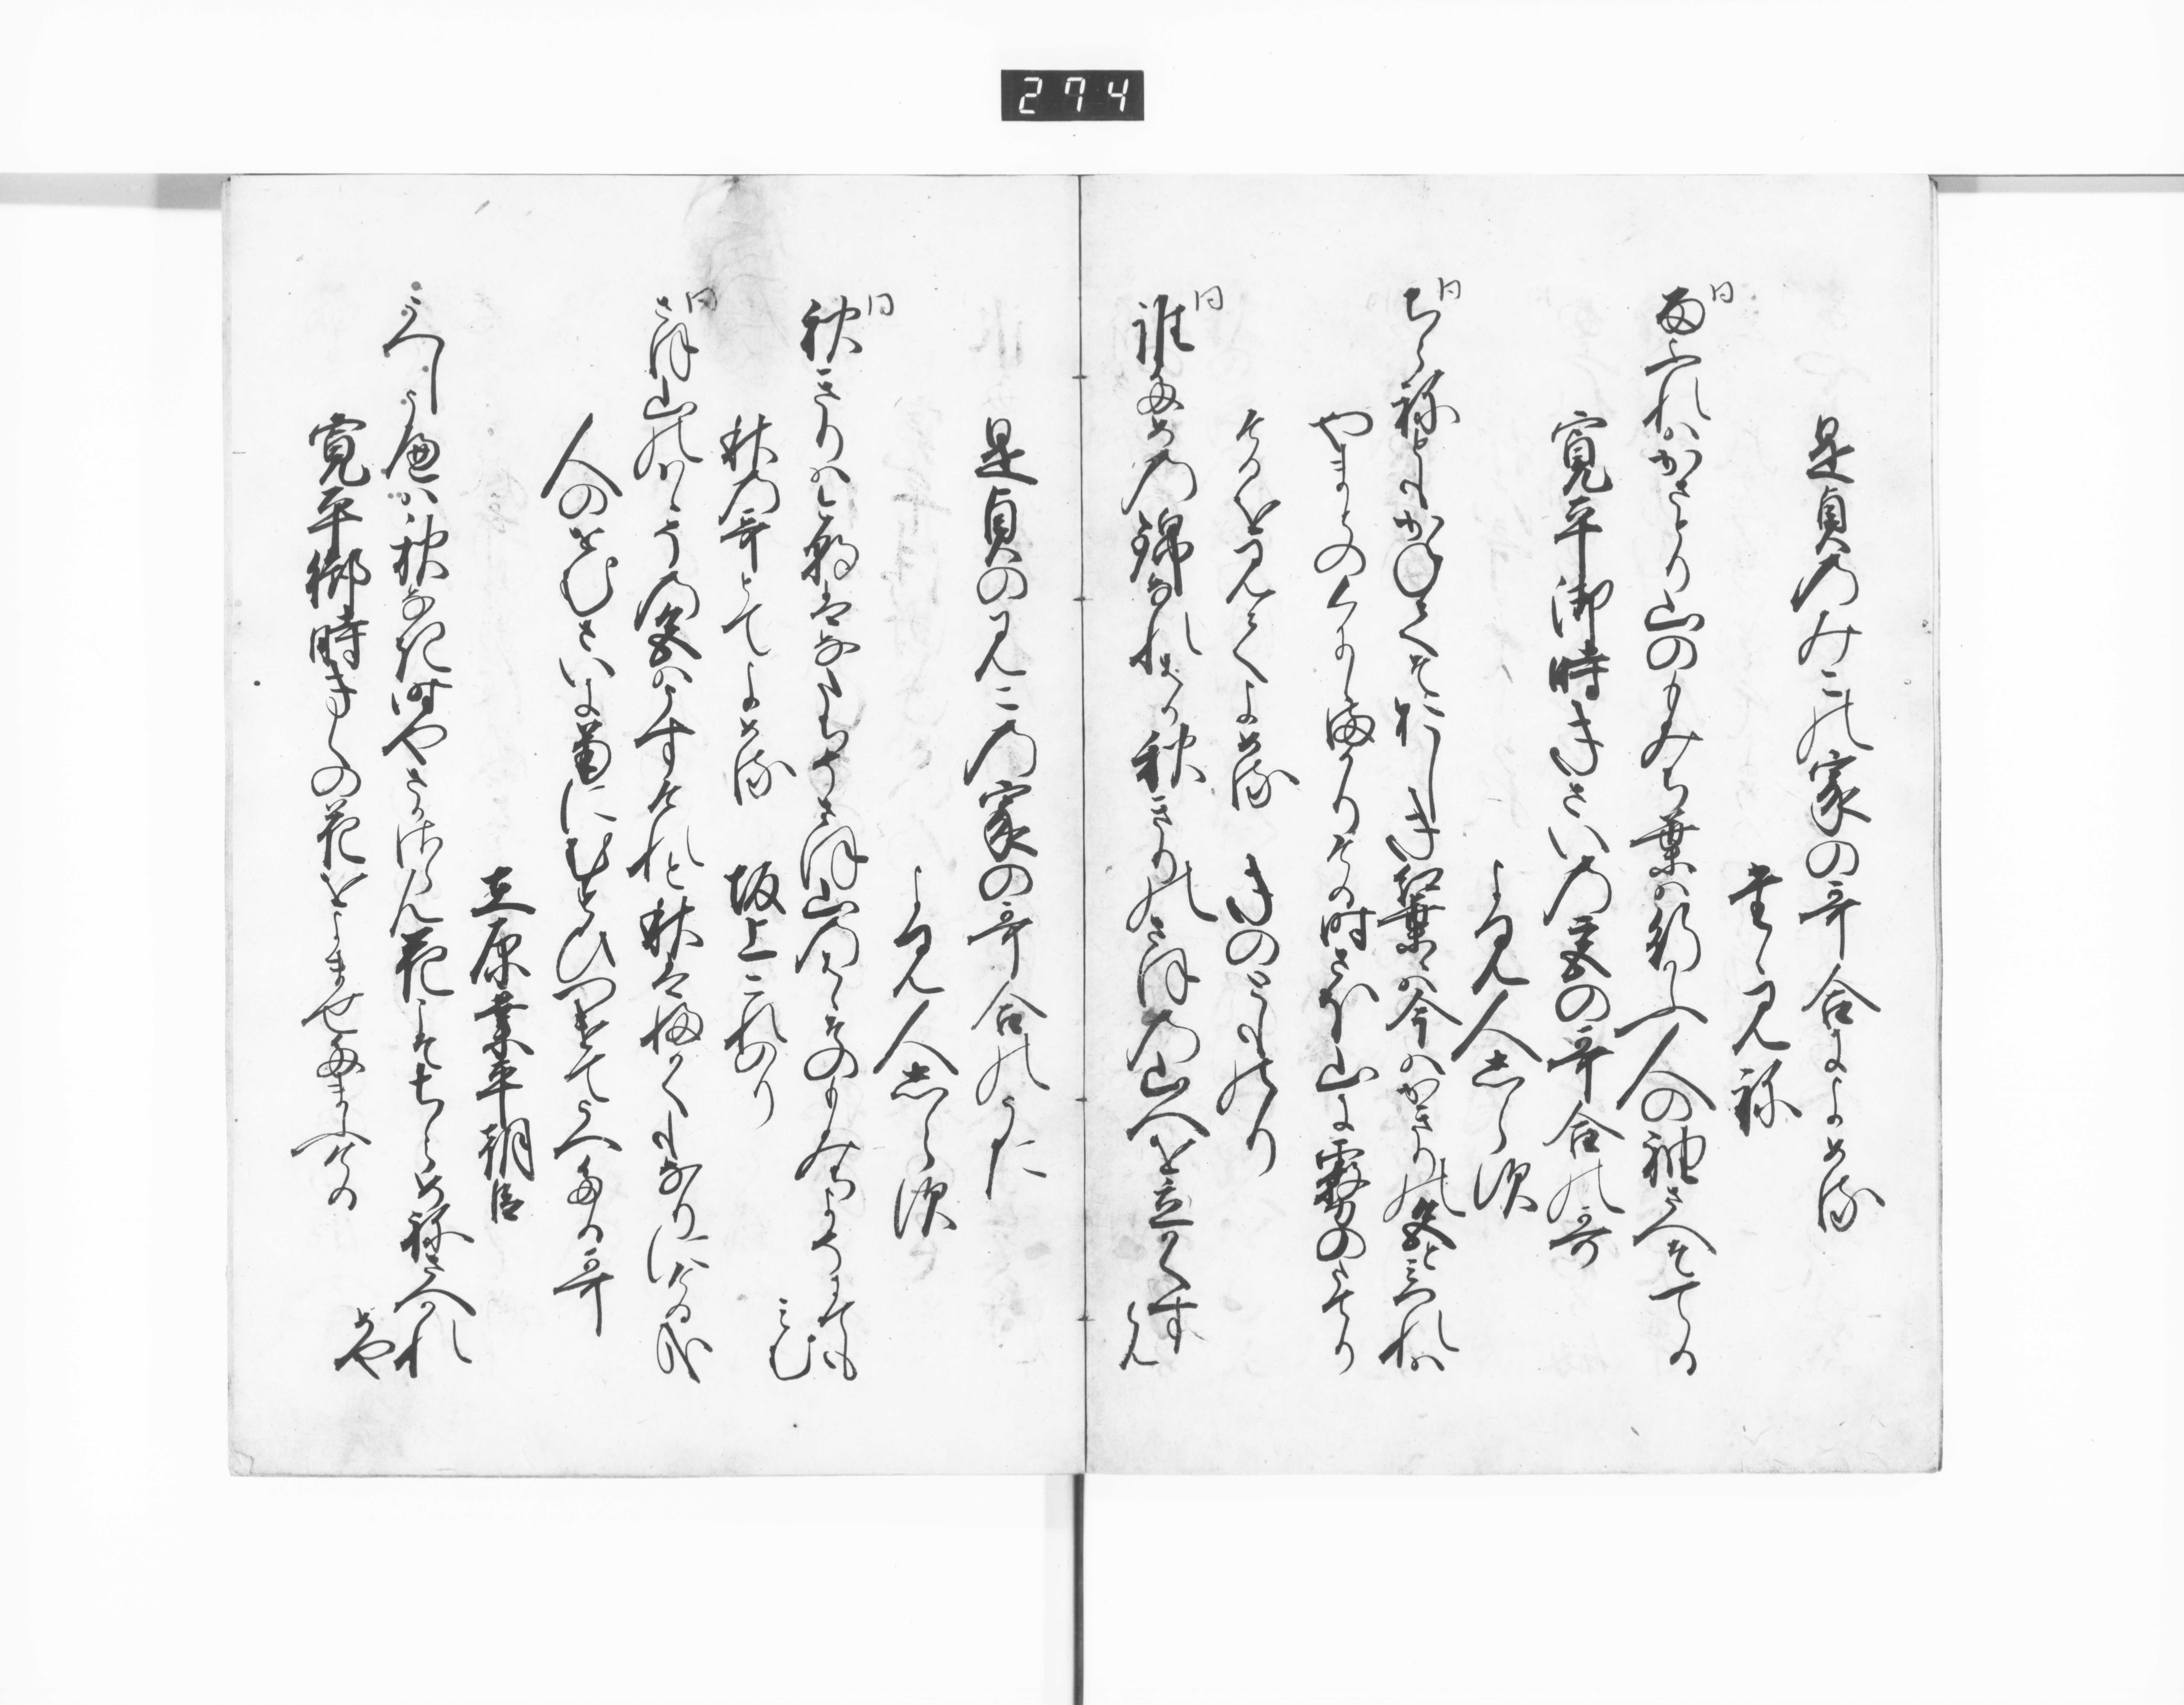 274
是貞のみこの家の哥合によめる
たゝみね
同
雨ふれはかさとり山のもみち葉は行かふ人の袖さへそてる
寛平御時きさいの宮の哥合の哥
よみ人しらす
同
ちらねともかねてそおしき紅葉は今はかきりの色とみつれは
やまとのくにゝまかりける時さほ山に霧のたてり
けるを見てよめる　きのとものり
同
誰ための錦なれはか秋きりのさほの山へを立かくす
らん
是貞のみこの家の哥合のうた
よみ人しらす
同
秋きりはけさはなたちそさほ山のはゝそのもみちよそにても
みむ
秋の哥とてよめる　坂上これのり
同
さほ山のはゝその色はうすけれと秋はふかくもなりにける哉
人のせむさいに菊にむすひつけてうへける哥
在原業平朝臣
うへしうへは秋なき時やさかさらん花こそちらめ根さへかれ
めや
寛平御時きくの花をよませたまふける